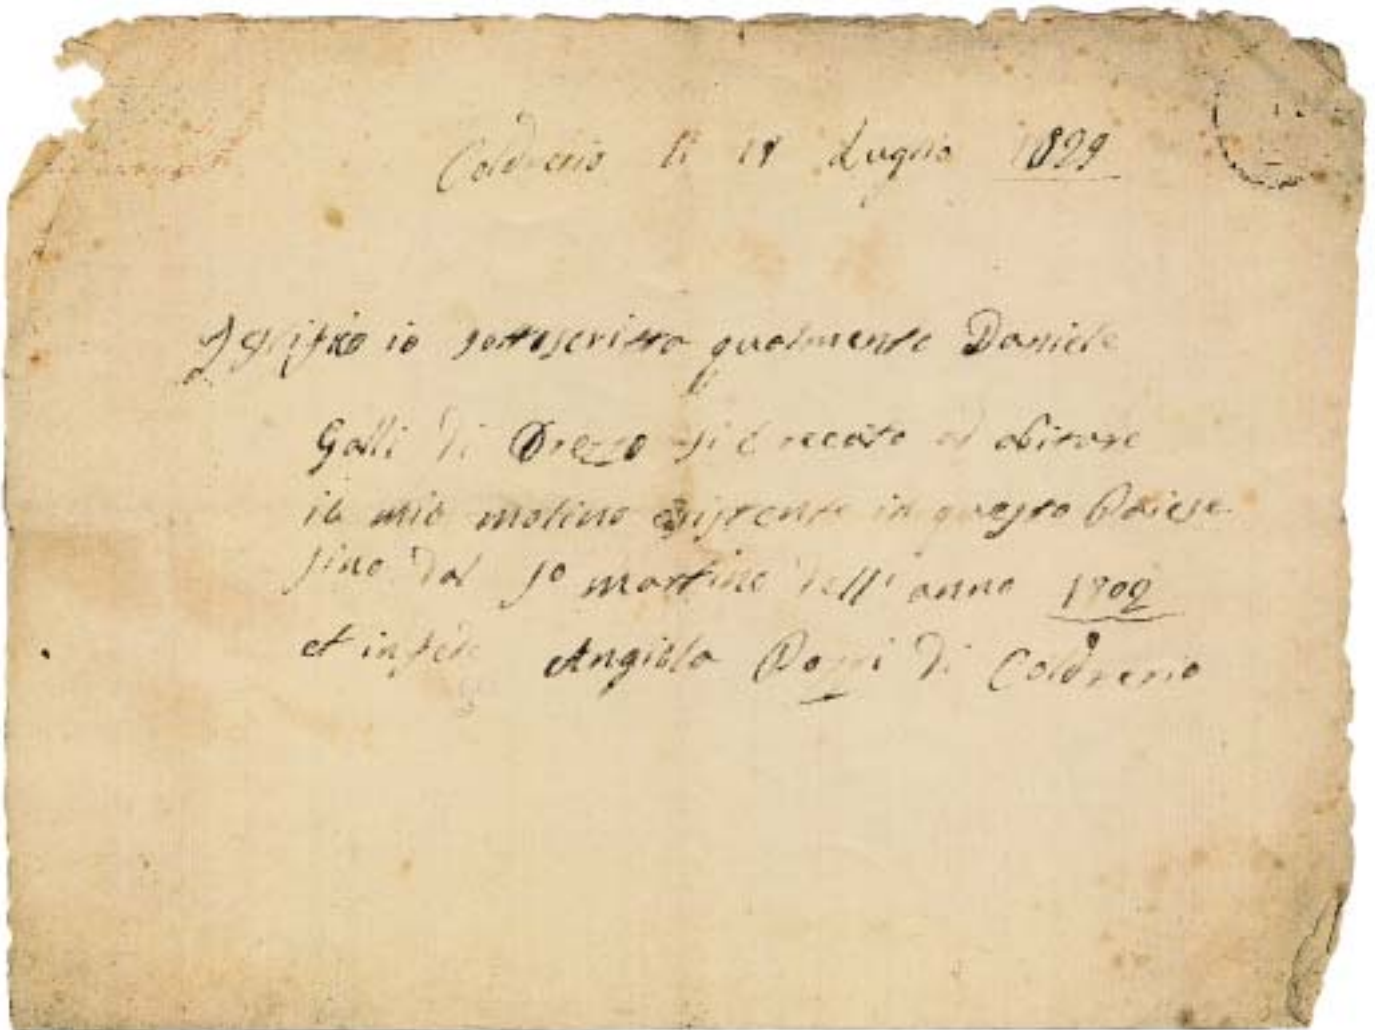 Coldrerio li 18 Luglio 1829
io sottoscritto qualmente Daniele
Galli di Drezzo si è recato ad abitare
il mio molino esistente in questo Paiese
sino dal So martino dell' anno 1802
et in fede Angiolo Pozzi di Coldrerio